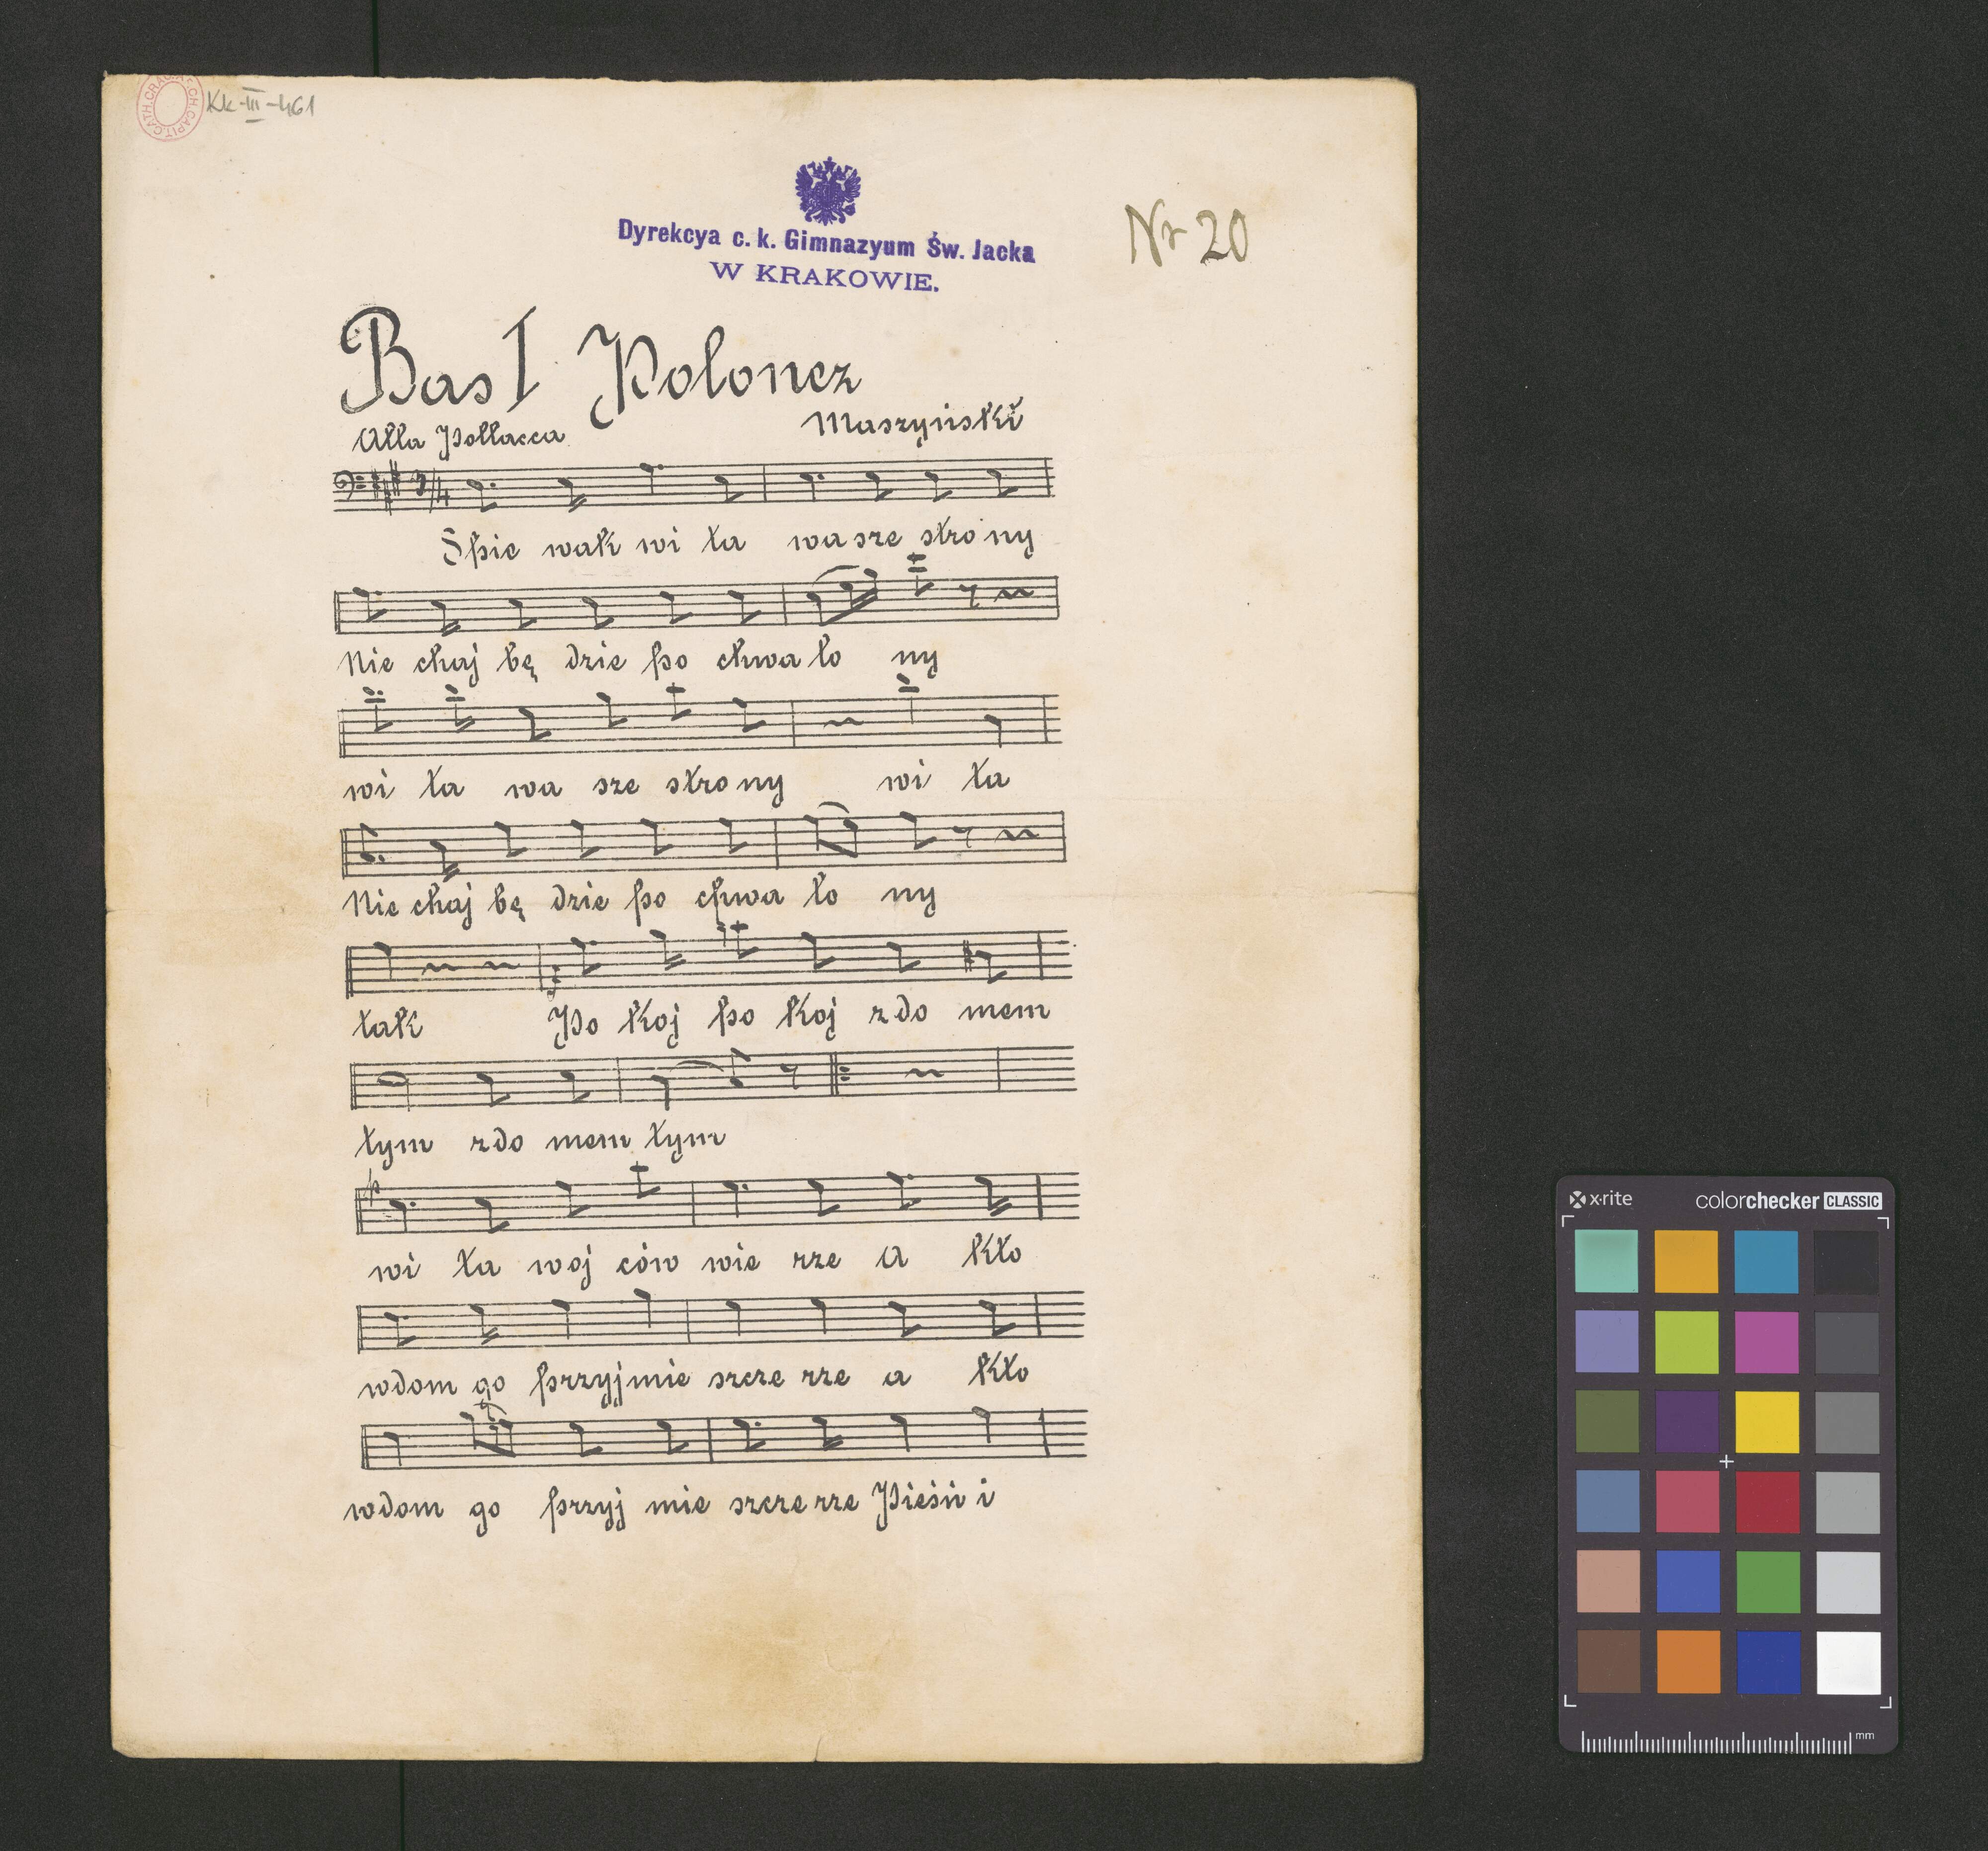 CATH.CRAC.
CH.CAPIT.
KK-III-461
Dyrekcya c. k. Gimnazyum Św. Jacka
W KRAKOWIE.
Nr 20
Bas I Polonez
Alla Pollacca
Maszyński
3/4
Śpie wak wi ta wa sze stro ny
Nie chaj bę dzie po chwa ło ny
wi ta wa sze stro ny wi ta
Nie chaj bę dzie po chwa ło ny
tak Po koj po koj z do mem
tym z do mem tym
wi ta woj ców wie rze a kto
w dom go przyj mie szcze rze a kto
w dom go przyj mie szcze rze Pieśń i
x·rite colorchecker CLASSIC
mm